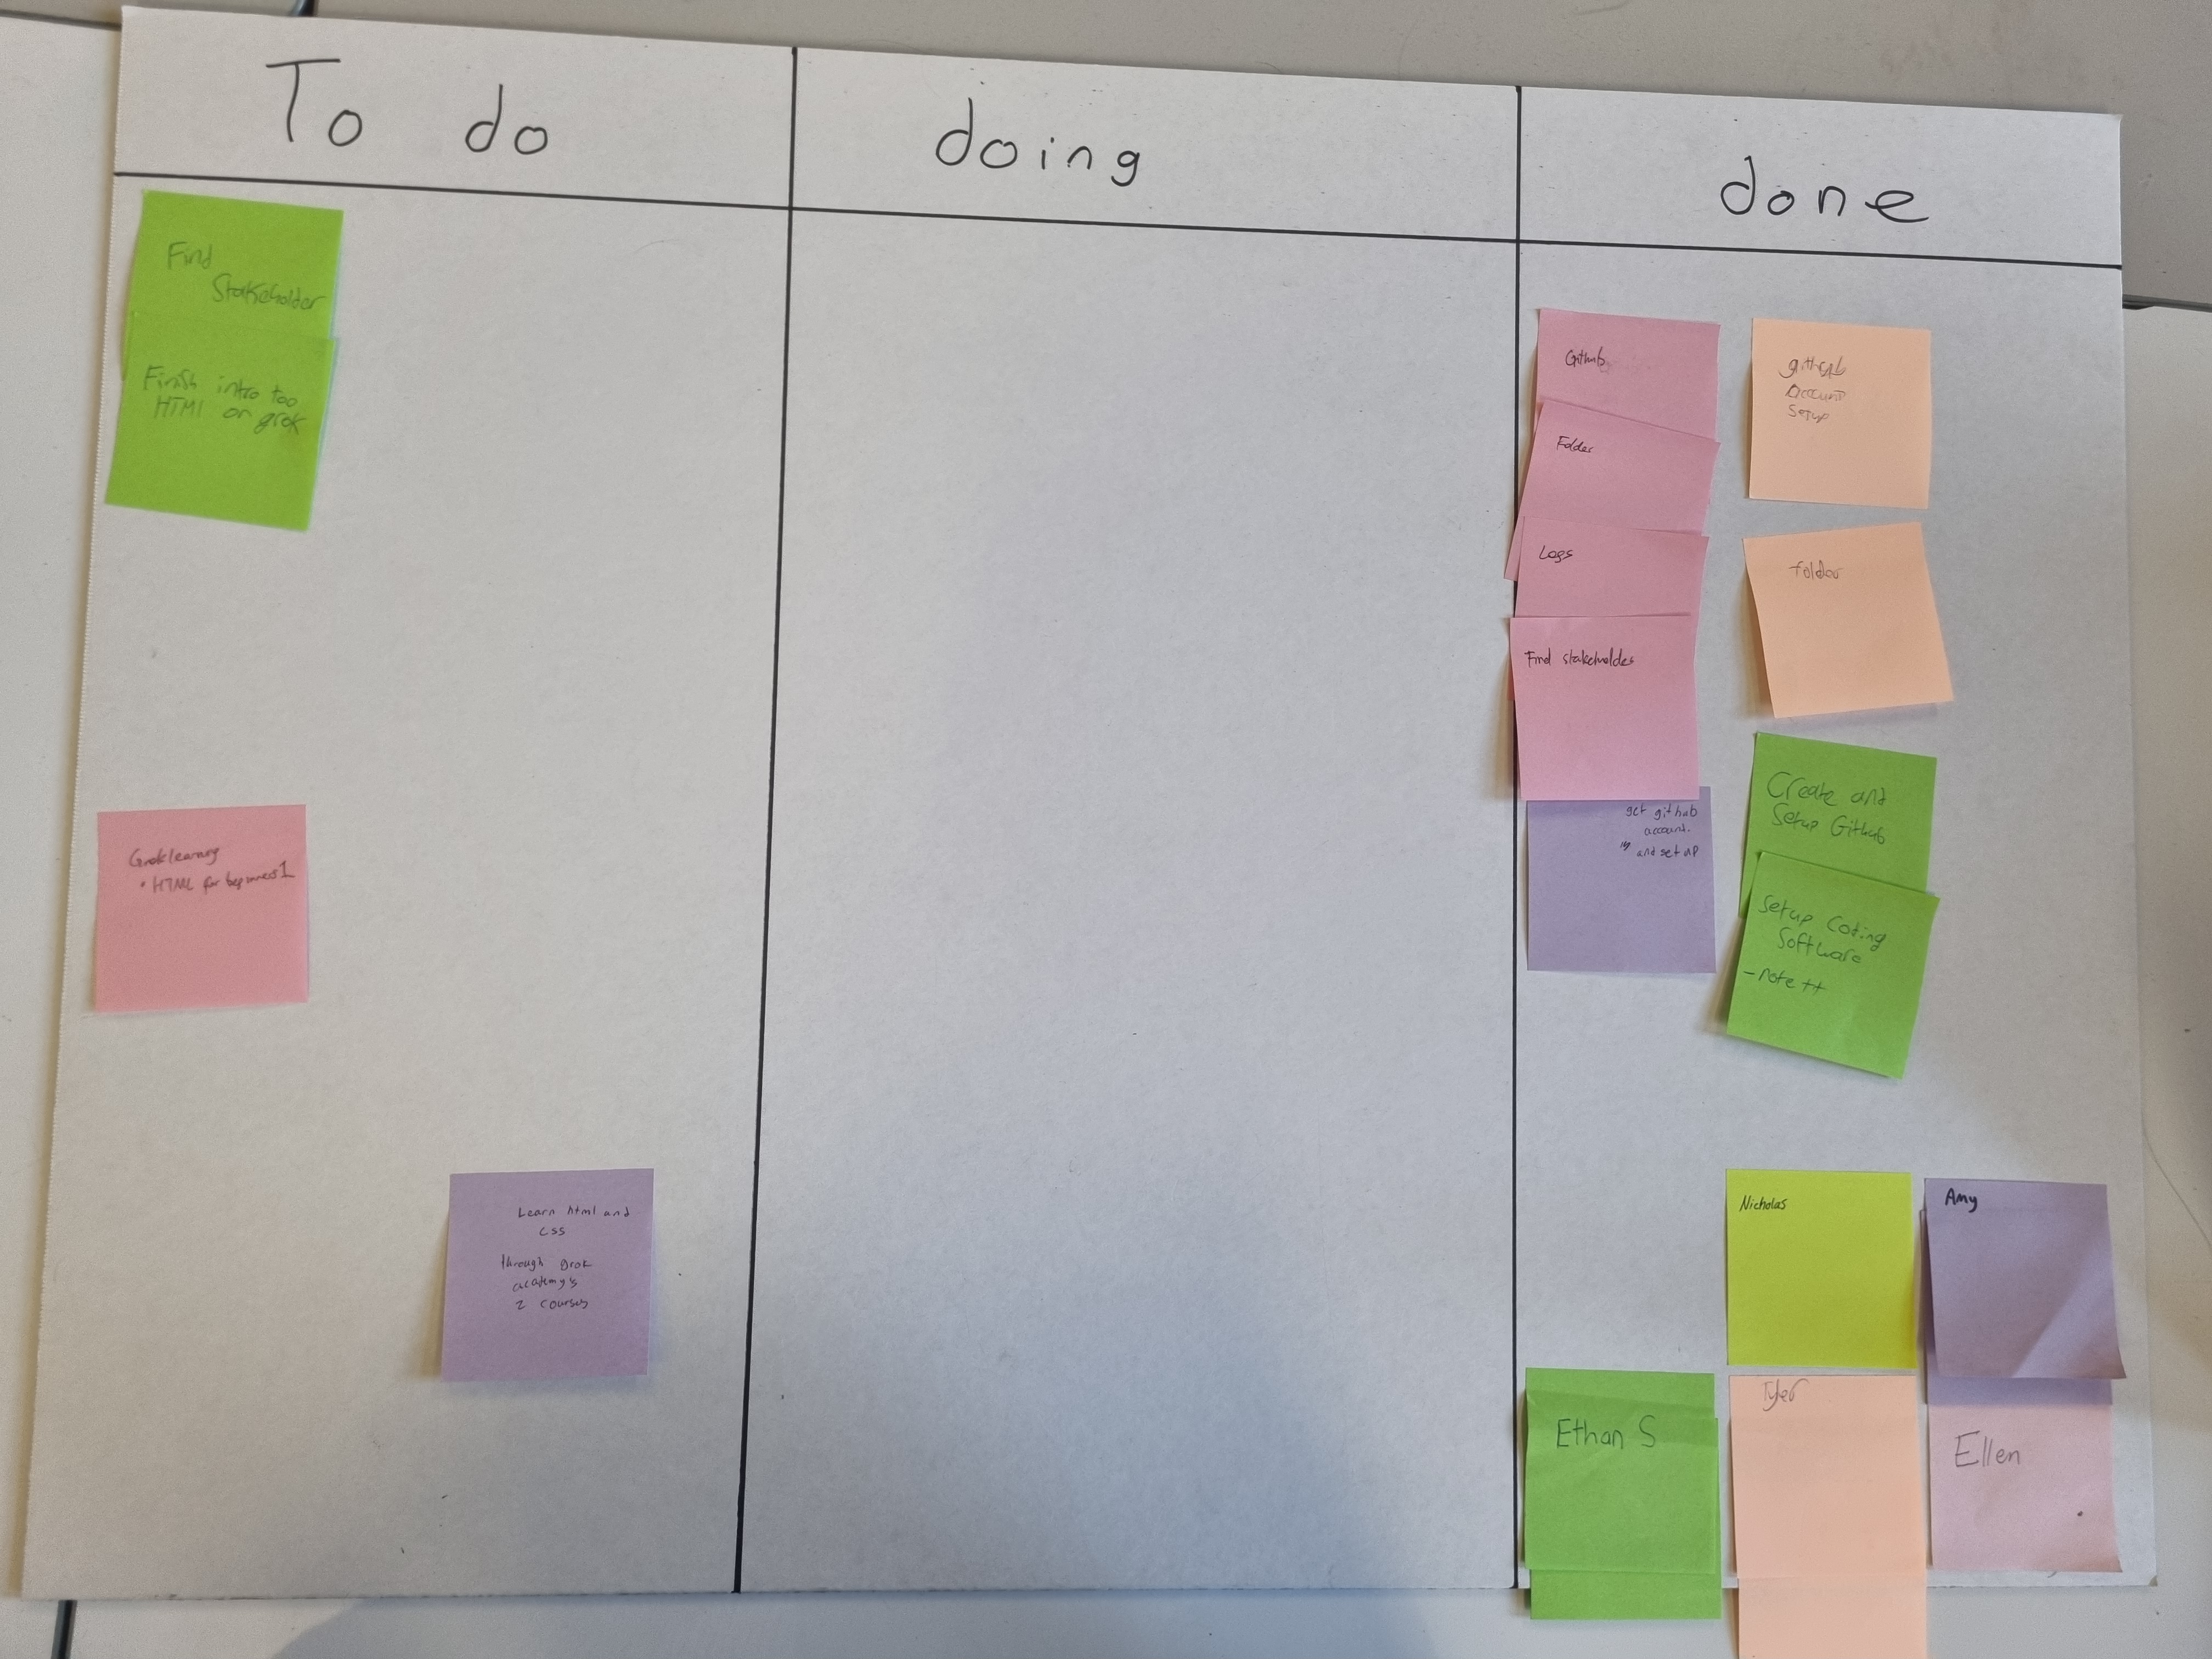 To do
doing
done
Find
Stakeholder
Finish intro too
HTMl on grok
Groklearning
• HTML for beginners 1
Learn html and
css
through Grok
academy's
2 courses
Github
Folder
Logs
Find stakeholder
get github
account.
and set up
github
account
Setup
folder
Create and
Setup Github
Setup Coding
Software
- note ++
Nicholas
Amy
Ethan S
Tyler
Ellen